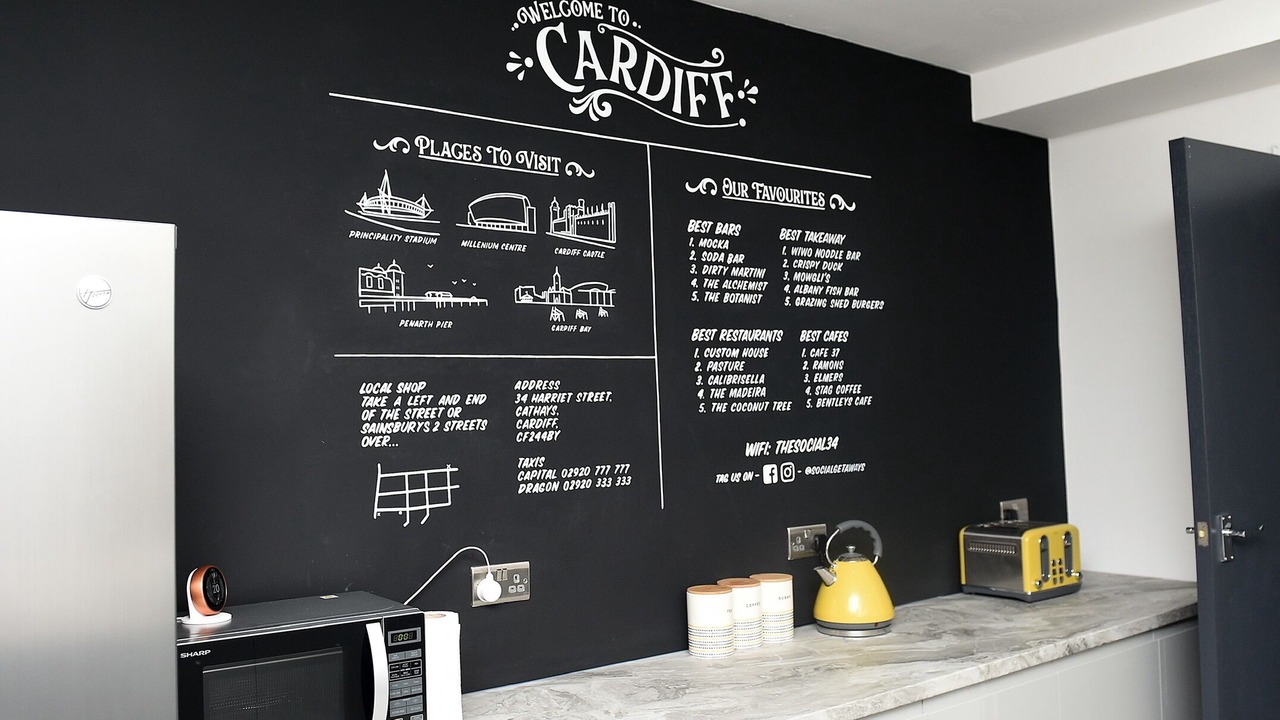 WELCOME TO..
CARDIFF
PLACES TO VISIT
PRINCIPALITY STADIUM
MILLENIUM CENTRE
CARDIFF CASTLE
PENARTH PIER
CARDIFF BAY
LOCAL SHOP
TAKE A LEFT AND END
OF THE STREET OR
SAINSBURYS 2 STREETS
OVER...
ADDRESS
34 HARRIET STREET,
CATHAYS,
CARDIFF,
CF244BY
TAXIS
CAPITAL 02920 777 777
DRAGON 02920 333 333
OUR FAVOURITES
BEST BARS
1. MOCKA
2. SODA BAR
3. DIRTY MARTINI
4. THE ALCHEMIST
5. THE BOTANIST
BEST TAKEAWAY
1. WIWO NOODLE BAR
2. CRISPY DUCK
3. MOWGLI'S
4. ALBANY FISH BAR
5. GRAZING SHED BURGERS
BEST RESTAURANTS
1. CUSTOM HOUSE
2. PASTURE
3. CALIBRISELLA
4. THE MADEIRA
5. THE COCONUT TREE
BEST CAFES
1. CAFE 37
2. RAMONS
3. ELMERS
4. STAG COFFEE
5. BENTLEYS CAFE
WIFI: THESOCIAL34
TAG US ON - - @SOCIALGETAWAYS
Hoover
20
SHARP